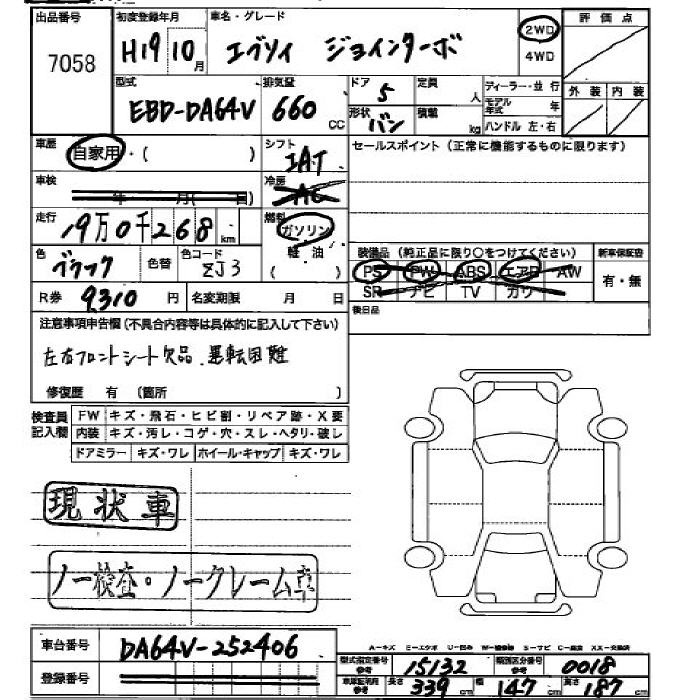 出品番号 初度登録年月 車名・グレード 評価点
7058 H19 10月 エブリイ ジョインターボ 2WD
4WD
型式 排気量 ドア 定員 ディーラー・並行 外装 内装
EBD-DA64V 660cc 5 人 モデル年式 年
形状 バン 積載 kg ハンドル 左・右
車歴 自家用・( ) シフト IAT セールスポイント(正常に機能するものに限ります)
車検 年 月( 日) 冷房 AC
走行 19万0千268km 燃料 ガソリン
軽油
( )
色 ブラック 色替 色コード ZJ3
装備品(純正品に限り○をつけてください) 新車保証書
PS PW ABS エアB AW 有・無
SR ナビ TV カワ
R券 9310円 名変期限 月 日 後日品
注意事項申告欄(不具合内容等は具体的に記入して下さい)
左右フロントシート欠品、運転困難
修復歴 有(箇所 )
検査員記入欄 FW キズ・飛石・ヒビ割・リペア跡・X要
内装 キズ・汚レ・コゲ・穴・スレ・ヘタリ・破レ
ドアミラー キズ・ワレ ホイール・キャップ キズ・ワレ
現状車
ノー検査・ノークレーム車
車台番号 DA64V-252406
A-キズ E-エクボ U-凹み S-サビ
登録番号
型式指定番号 参考 15132 類別区分番号 参考 0018
参考 長さ 339cm 幅 147cm 高さ 187cm